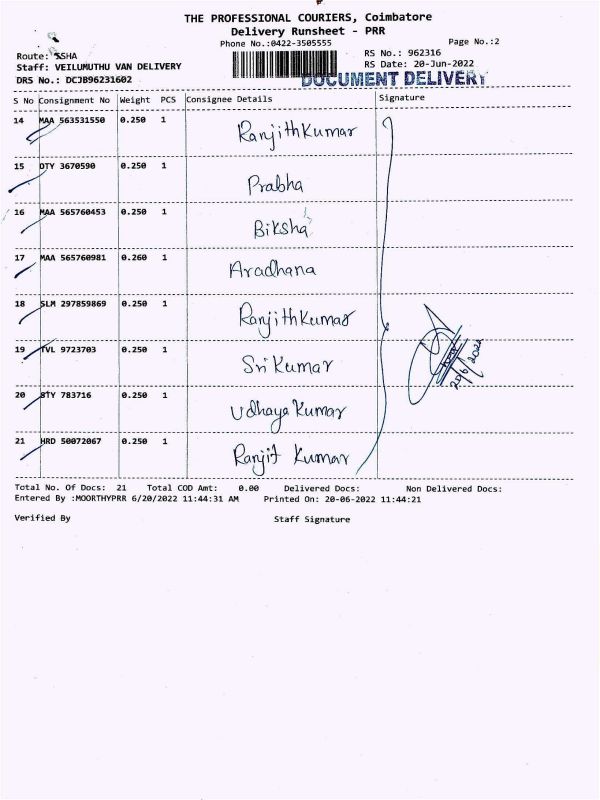 THE PROFESSIONAL COURIERS, Coimbatore
Delivery Runsheet - PRR
Phone No.:0422-3505555 Page No.:2
Route: SSHA RS No.: 962316
Staff: VEILUMUTHU VAN DELIVERY RS Date: 20-Jun-2022
DRS No.: DCJB96231602 DOCUMENT DELIVERY
S No Consignment No Weight PCS Consignee Details Signature
14 MAA 563531550 0.250 1 Ranjith Kumar
15 DTY 3670590 0.250 1 Prabha
16 MAA 565760453 0.250 1 Biksha
17 MAA 565760981 0.260 1 Aradhana
18 SLM 297859869 0.250 1 Ranjith Kumar
19 TVL 9723703 0.250 1 Sri Kumar
20 STY 783716 0.250 1 Udhaya Kumar
21 HRD 50072067 0.250 1 Ranjit Kumar
20/6/2022
Total No. Of Docs: 21 Total COD Amt: 0.00 Delivered Docs: Non Delivered Docs:
Entered By :MOORTHYPRR 6/20/2022 11:44:31 AM Printed On: 20-06-2022 11:44:21
Verified By Staff Signature